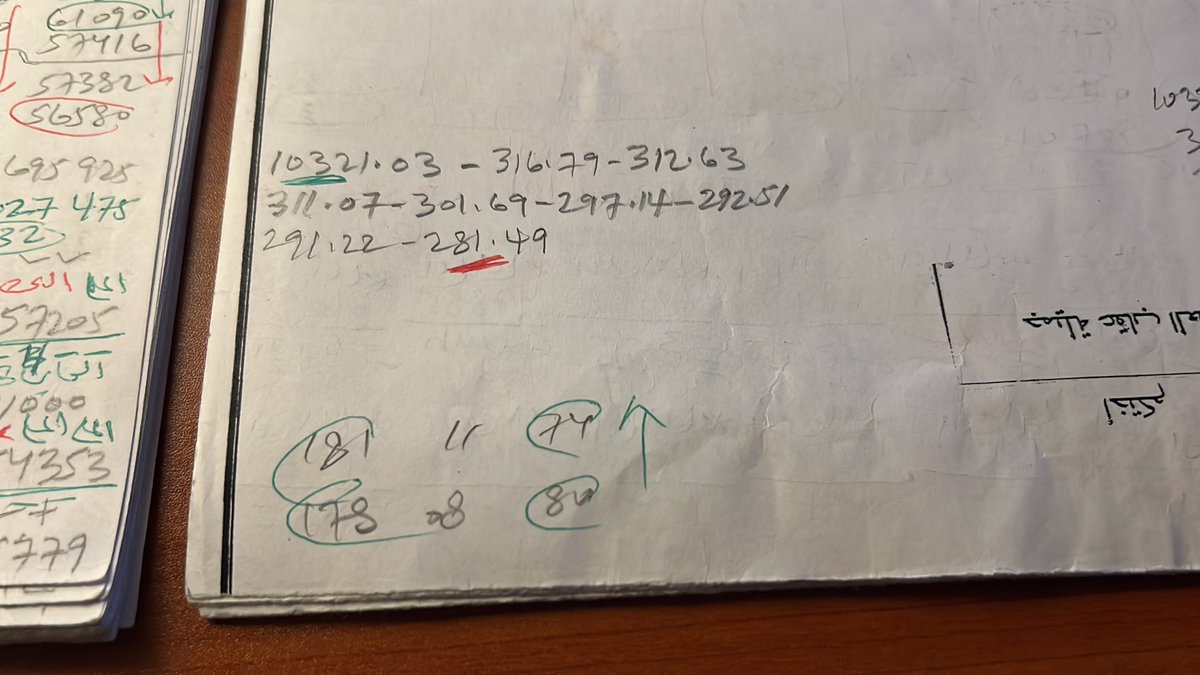 61090
57416
57382
56580
695 925
027 475
32
57205
1000
4353
779
10321.03 - 316.79 - 312.63
311.07 - 301.69 - 297.14 - 292.51
291.22 - 281.49
181 11 74
178 08 84
103
3
جميلة عقاب